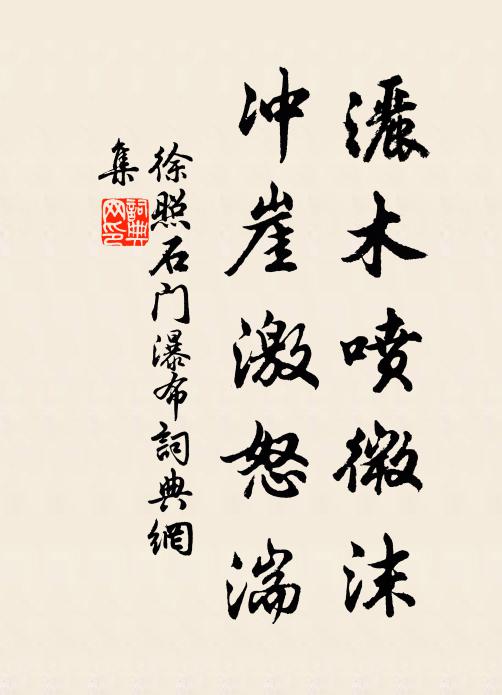 灑木喷微沫
冲崖激怒湍
徐照石门瀑布詞典網
集
詞典
网印